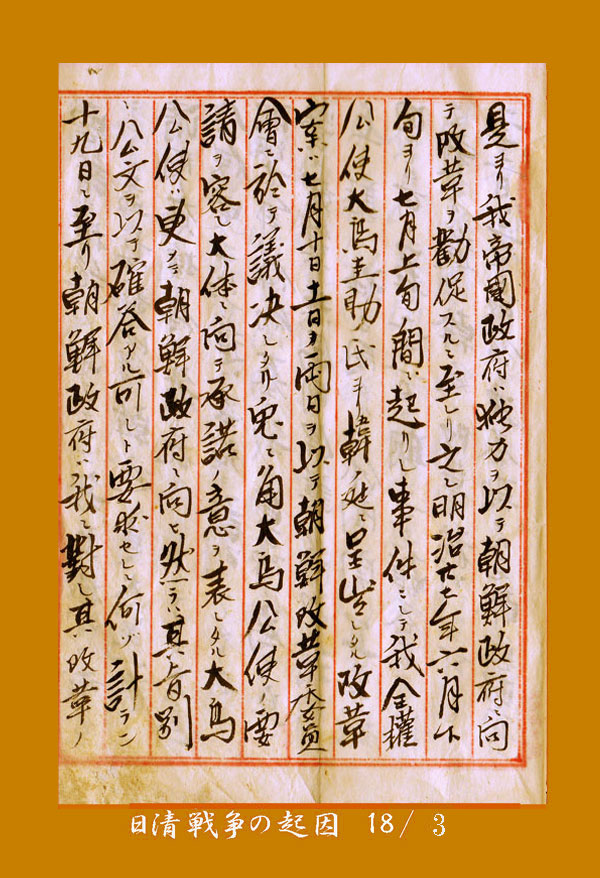 是ヨリ我帝國政府ハ独力ヲ以テ朝鮮政府ニ向
テ改革ヲ勸促スルニ至レリ之レ明治廿七年六月下
旬ヨリ七月上旬ノ間ニ起リシ事件ニシテ我全權
公使大鳥圭助氏ヨリ韓廷ニ呈出シタル改革
案ハ七月十日十一日ノ両日ヲ以テ朝鮮改革委員
會ニ於テ議決シタリ兎ニ角大鳥公使ノ要
請ヲ容レ大体ニ向テ承諾ノ意ヲ表シタル大鳥
公使ハ更ニ朝鮮政府ニ向ヒ然ラハ其旨別
ニ公文ヲ以テ確答アル可シト要求セシニ何ゾ計ラン
十九日ニ至リ朝鮮政府ハ我ニ對シ其改革ノ
日清戦争の起因 18/ 3